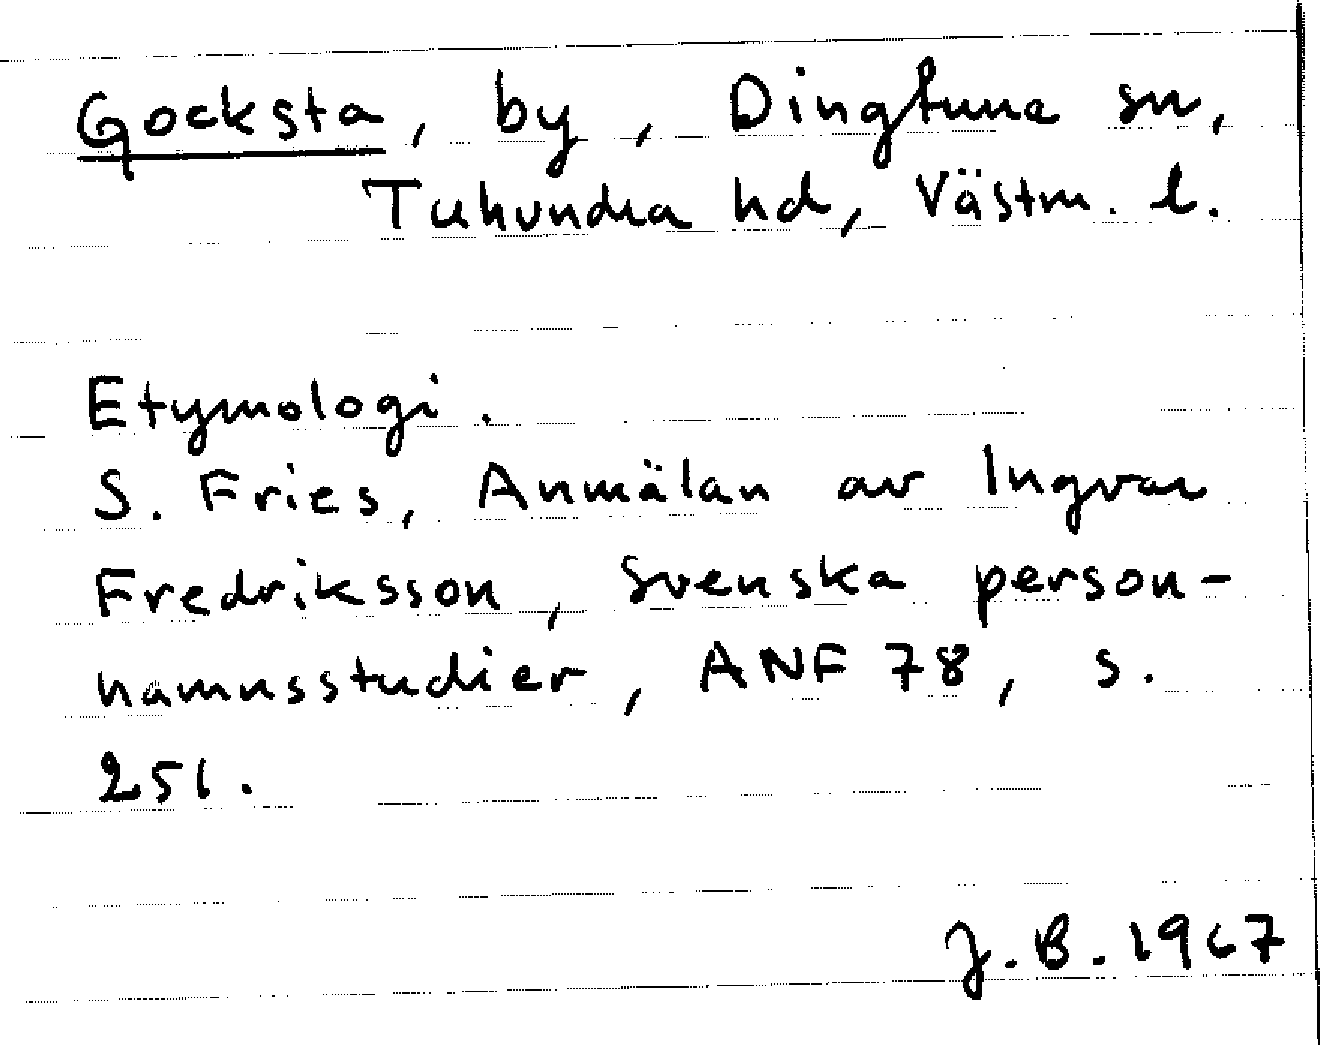 Gocksta, by, Dingtuna sn,
Tuhundra hd, Västm. l.
Etymologi.
S. Fries, Anmälan av Ingvar
Fredriksson, Svenska person-
namnsstudier, ANF 78, s.
251.
J.B. 1967